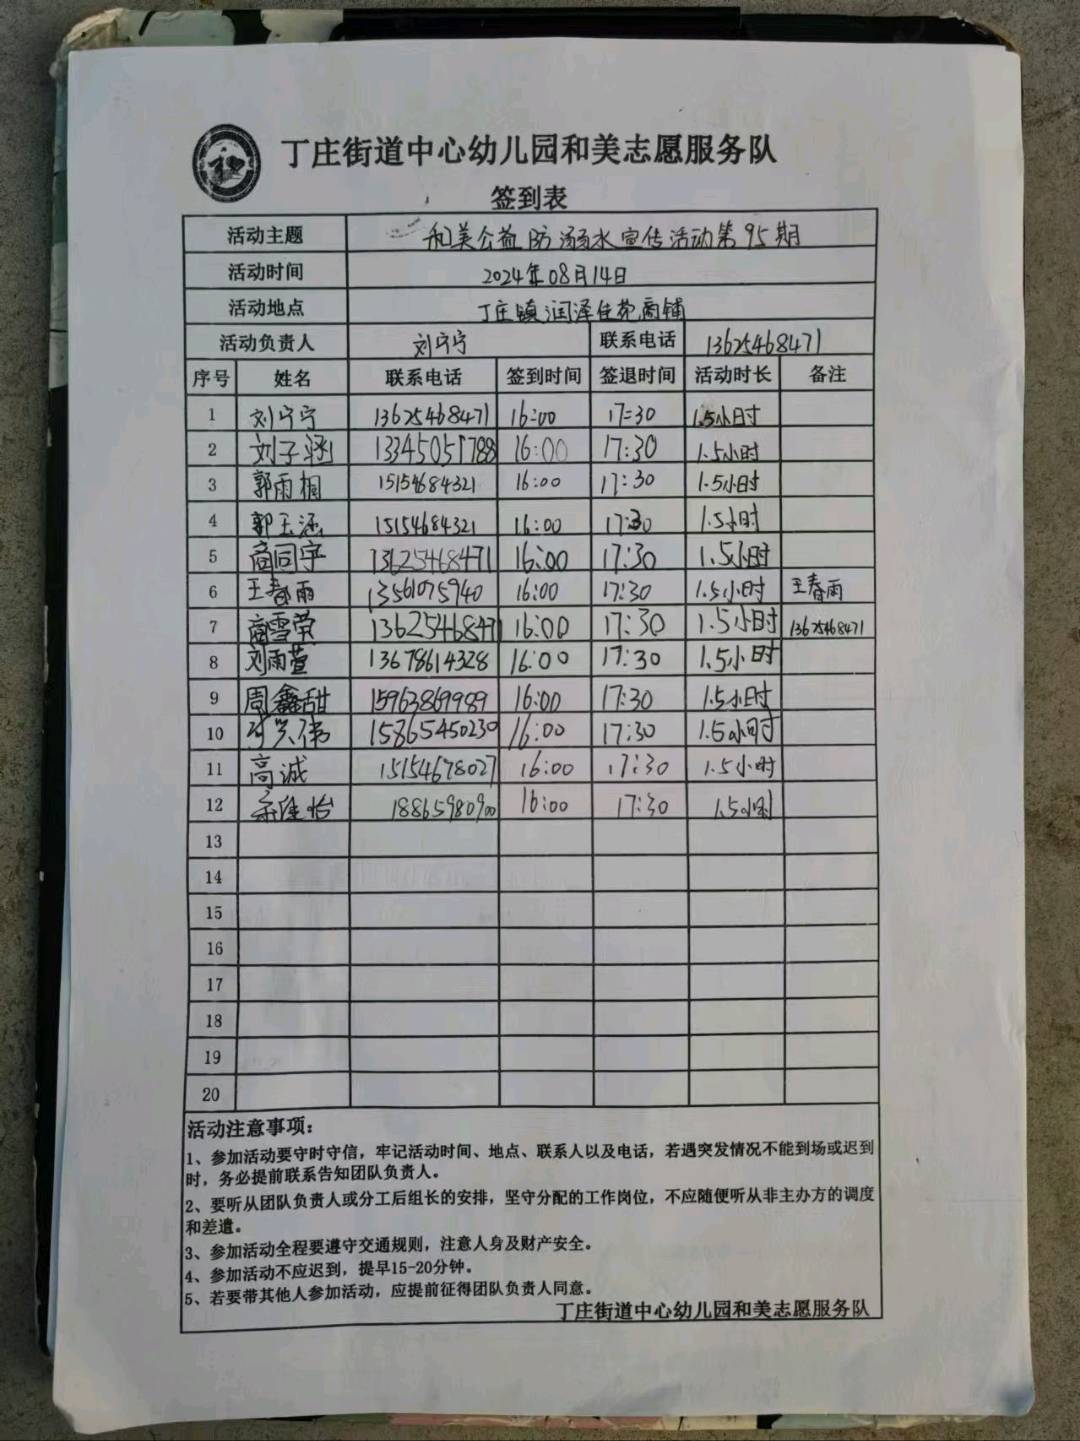 丁庄街道中心幼儿园和美志愿服务队
签到表
活动主题 和美公益防溺水宣传活动第95期
活动时间 2024年08月14日
活动地点 丁庄镇润泽佳苑商铺
活动负责人 刘宁宁 联系电话 13625468471
序号 姓名 联系电话 签到时间 签退时间 活动时长 备注
1 刘宁宁 13625468471 16:00 17:30 1.5小时
2 刘子涵 13345051788 16:00 17:30 1.5小时
3 郭雨桐 15154684321 16:00 17:30 1.5小时
4 郭玉涵 15154684321 16:00 17:30 1.5小时
5 商同宇 13625468471 16:00 17:30 1.5小时
6 王春雨 13561075940 16:00 17:30 1.5小时 王春雨
7 商雪莹 13625468471 16:00 17:30 1.5小时 13625468471
8 刘雨萱 13678614328 16:00 17:30 1.5小时
9 周鑫甜 15963869989 16:00 17:30 1.5小时
10 15865450230 16:00 17:30 1.5小时
11 高诚 15154678027 16:00 17:30 1.5小时
12 18865980900 16:00 17:30 1.5小时
13
14
15
16
17
18
19
20
活动注意事项：
1、参加活动要守时守信，牢记活动时间、地点、联系人以及电话，若遇突发情况不能到场或迟到
时，务必提前联系告知团队负责人。
2、要听从团队负责人或分工后组长的安排，坚守分配的工作岗位，不应随便听从非主办方的调度
和差遣。
3、参加活动全程要遵守交通规则，注意人身及财产安全。
4、参加活动不应迟到，提早15-20分钟。
5、若要带其他人参加活动，应提前征得团队负责人同意。
丁庄街道中心幼儿园和美志愿服务队